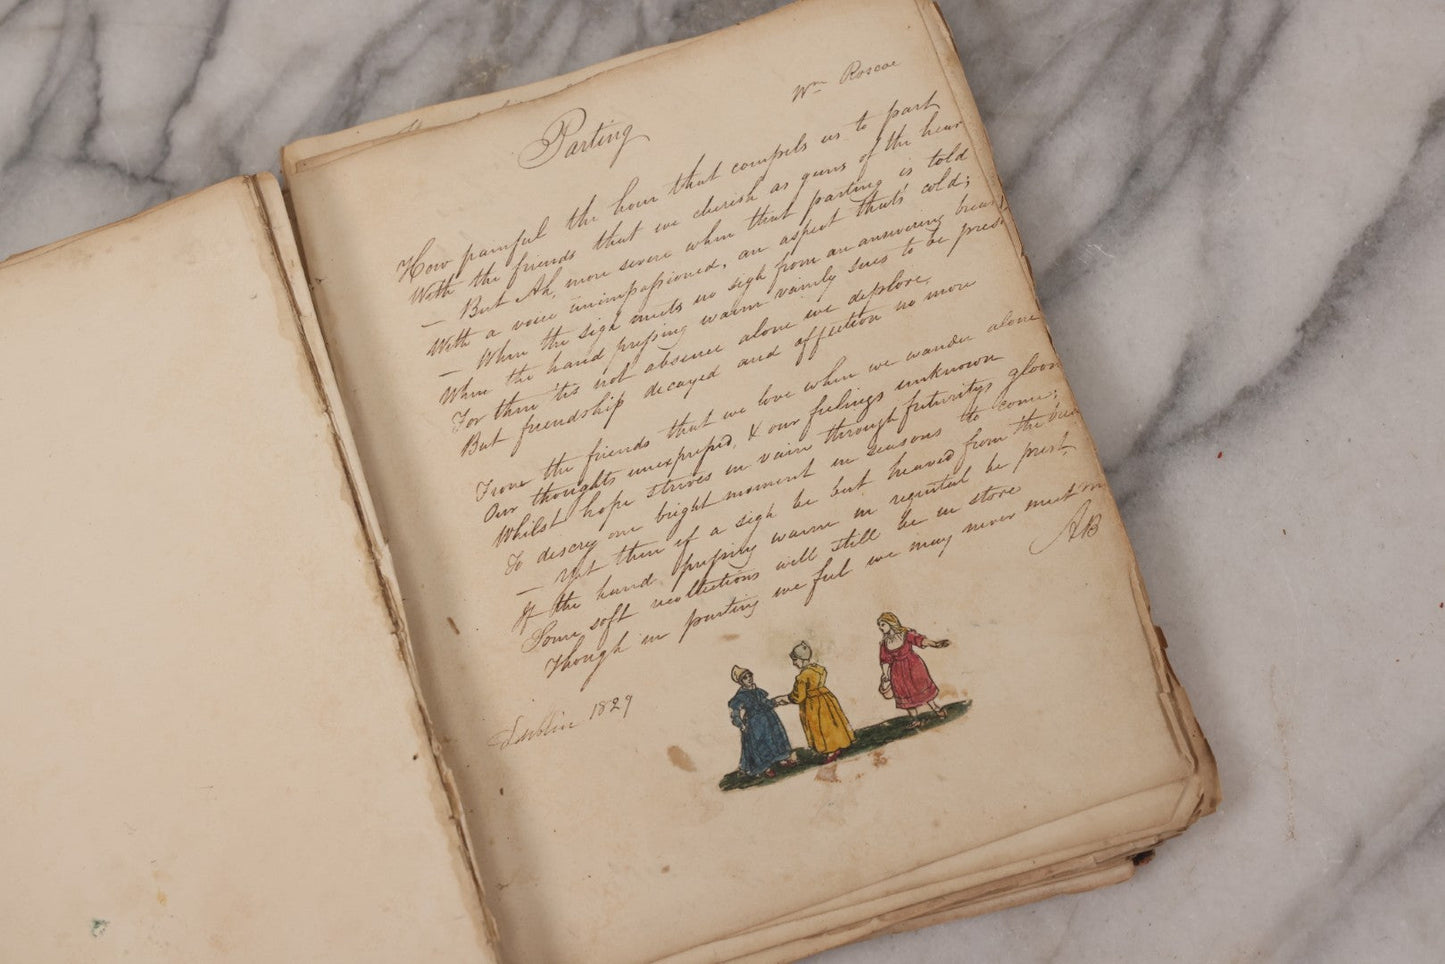 Parting
Wm Roscoe
How painful the hour that compels us to part
With the friends that we cherish as gems of the hear
— But Ah, more severe when that parting is told
With a voice unimpassioned, an aspect that's cold;
— When the sigh meets no sigh from an answering breast
When the hand pressing warm vainly sues to be prest
For then 'tis not absence alone we deplore
But friendship decayed and affection no more
From the friends that we love when we wander alone
Our thoughts unexpress'd, & our feelings unknown
Whilst hope strives in vain through futuritys gloom
To descry one bright moment in seasons to come;
— Yet then if a sigh be but heaved from the brea
If the hand pressing warm in requital be prest
Some soft recollections will still be in store
Though in parting we feel we may never meet m
AB
Dublin 1829